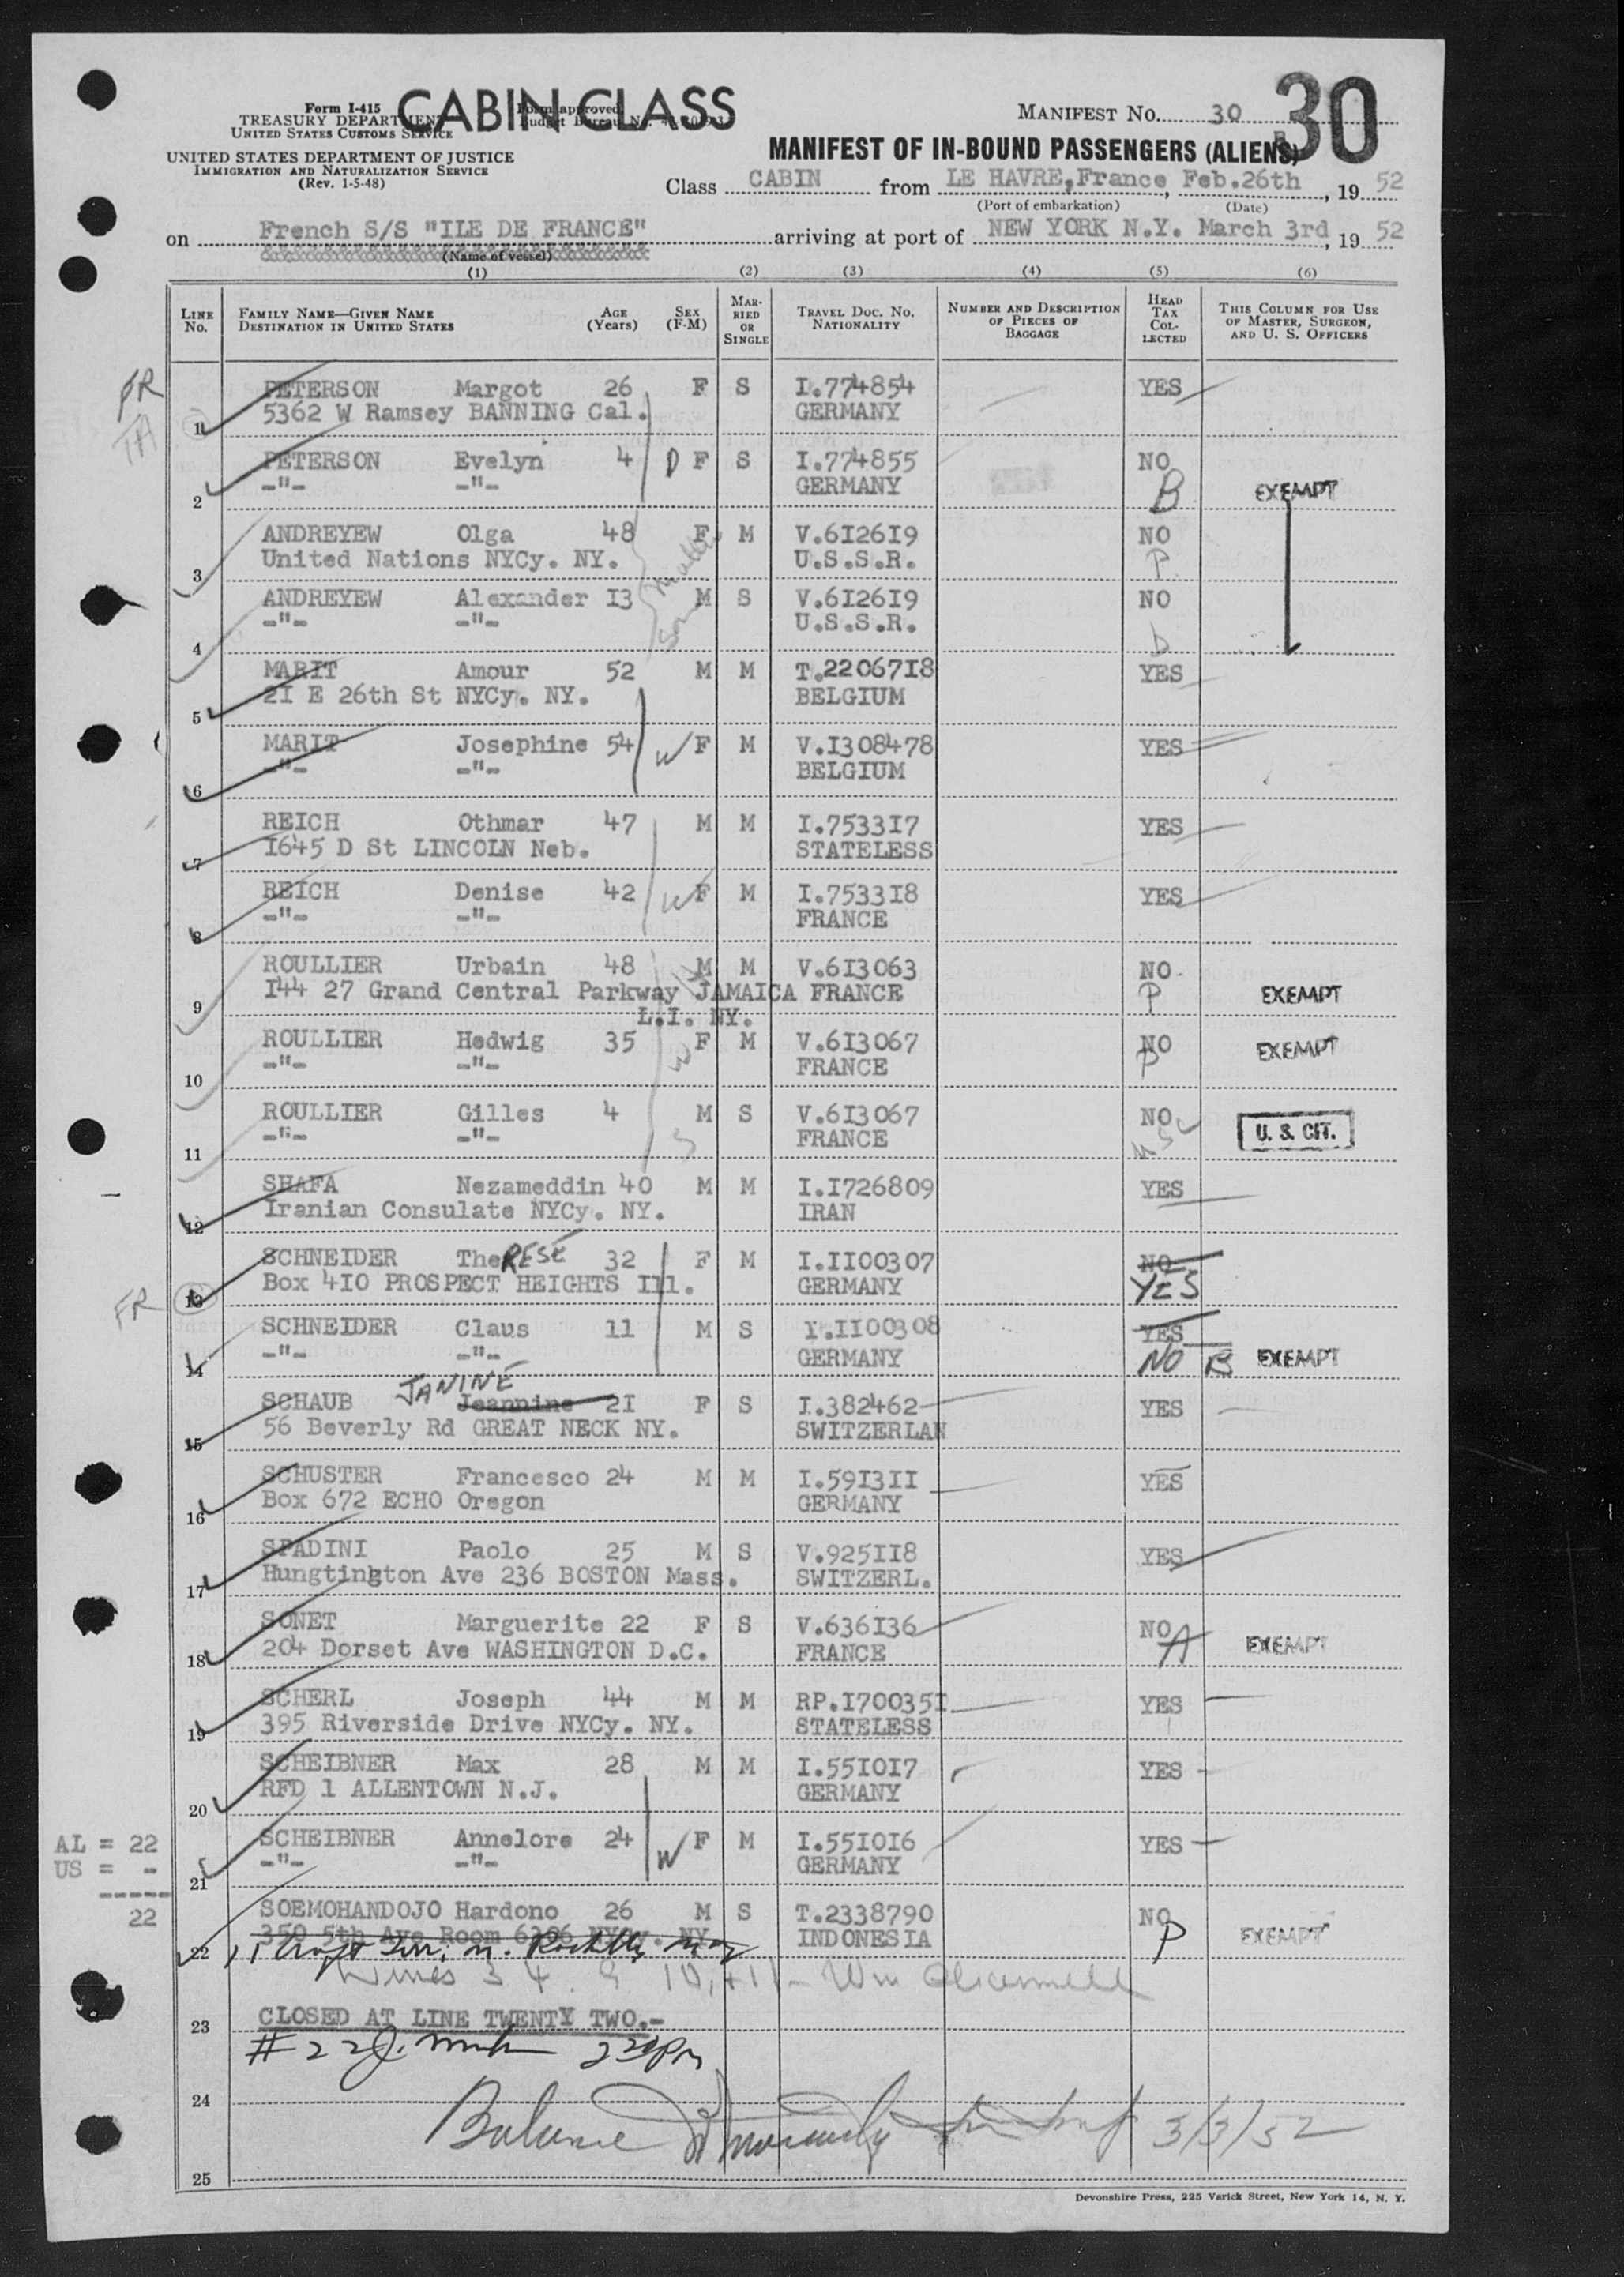 Form I-415
TREASURY DEPARTMENT
UNITED STATES CUSTOMS SERVICE
CABIN CLASS
Form approved
Budget Bureau No.
UNITED STATES DEPARTMENT OF JUSTICE
IMMIGRATION AND NATURALIZATION SERVICE
(Rev. 1-5-48)
MANIFEST No. 30
30
MANIFEST OF IN-BOUND PASSENGERS (ALIENS)
Class CABIN from LE HAVRE, France, Feb.26th, 19 52
(Port of embarkation) (Date)
on French S/S "ILE DE FRANCE" arriving at port of NEW YORK N.Y. March 3rd, 19 52
(Name of vessel)
(1) (2) (3) (4) (5) (6)
LINE No. FAMILY NAME—GIVEN NAME DESTINATION IN UNITED STATES AGE (Years) SEX (F-M) MARRIED OR SINGLE TRAVEL DOC. NO. NATIONALITY NUMBER AND DESCRIPTION OF PIECES OF BAGGAGE HEAD TAX COLLECTED THIS COLUMN FOR USE OF MASTER, SURGEON, AND U. S. OFFICERS
FR
PETERSON Margot 26 F S I.774854 YES
1 5362 W Ramsey BANNING Cal. GERMANY
PETERSON Evelyn 4 D F S I.774855 NO
2 -"- -"- GERMANY B EXEMPT
ANDREYEW Olga 48 F M V.6I26I9 NO
3 United Nations NYCy. NY. U.S.S.R. P.
ANDREYEW Alexander I3 M S V.6I26I9 NO
4 -"- -"- Son U.S.S.R. D
MARIT Amour 52 M M T.22067I8 YES
5 2I E 26th St NYCy. NY. BELGIUM
MARIT Josephine 54 W F M V.I308478 YES
6 -"- -"- BELGIUM
REICH Othmar 47 M M I.7533I7 YES
7 I645 D St LINCOLN Neb. STATELESS
REICH Denise 42 W F M I.7533I8 YES
8 -"- -"- FRANCE
ROULLIER Urbain 48 M M V.6I3063 NO
9 I44 27 Grand Central Parkway JAMAICA FRANCE P EXEMPT
L.I. NY.
ROULLIER Hedwig 35 W F M V.6I3067 NO EXEMPT
10 -"- -"- FRANCE P
ROULLIER Gilles 4 M S V.6I3067 NO
11 -"- -"- S FRANCE USC U. S. CIT.
SHAFA Nezameddin 40 M M I.I726809 YES
12 Iranian Consulate NYCy. NY. IRAN
SCHNEIDER TheRESE 32 F M I.II00307 NO
FR 13 Box 4I0 PROSPECT HEIGHTS Ill. GERMANY YES
SCHNEIDER Claus 11 M S I.II00308 YES
14 -"- -"- GERMANY NO B EXEMPT
JANINE
SCHAUB Jeannine 2I F S I.382462 YES
15 56 Beverly Rd GREAT NECK NY. SWITZERLAN
SCHUSTER Francesco 24 M M I.59I3II YES
16 Box 672 ECHO Oregon GERMANY
SPADINI Paolo 25 M S V.925II8 YES
17 Hungtington Ave 236 BOSTON Mass. SWITZERL.
SONET Marguerite 22 F S V.636I36 NO
18 204 Dorset Ave WASHINGTON D.C. FRANCE A EXEMPT
SCHERL Joseph 44 M M RP.I70035I YES
19 395 Riverside Drive NYCy. NY. STATELESS
SCHEIBNER Max 28 M M I.55I0I7 YES
20 RFD 1 ALLENTOWN N.J. GERMANY
SCHEIBNER Annelore 24 W F M I.55I0I6 YES
21 -"- -"- GERMANY
AL = 22
US = -
-----
22
SOEMOHANDOJO Hardono 26 M S T.2338790 NO
22 350 5th Ave Room 6306 NYCy. NY. INDONESIA P EXEMPT
Lines 3 4. 9 10, + 11 - Wm
23 CLOSED AT LINE TWENTY TWO.-
#22 J. 2 30 PM
24
Balance 3/3/52
25
Devonshire Press, 225 Varick Street, New York 14, N. Y.